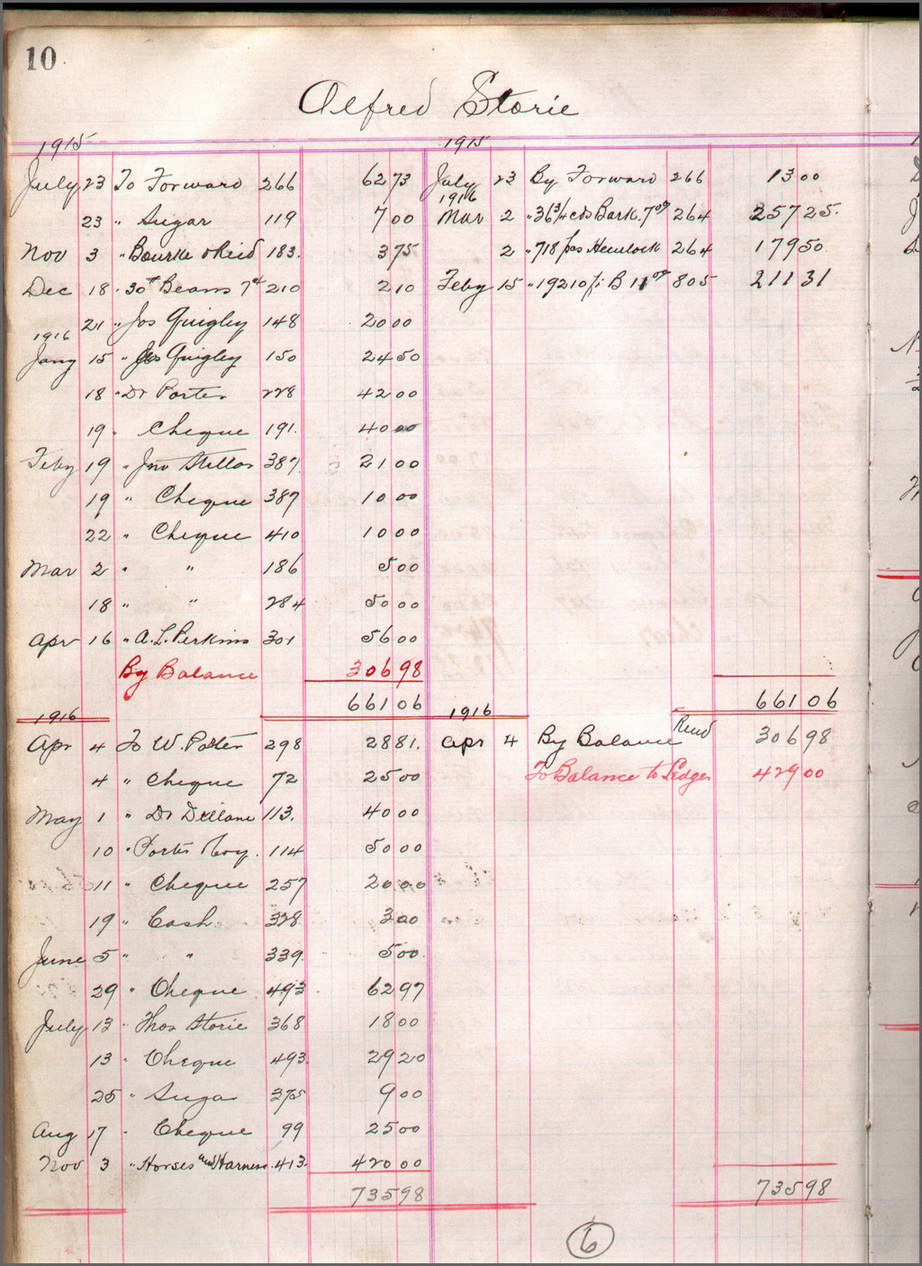 10
Alfred Storie
1915 1915
July 23 To Forward 266 62 73 July 23 By Forward 266 13 00
1916
23 " Sugar 119 7 00 Mar 2 " 36 3/4 cds Bark 7 00 264 257 25
Nov 3 " Bourke & Reid 183. 3 75 2 " 718 pcs Hemlock 264 179 50
Dec 18 " 30# Beans 7¢ 210 2 10 Feby 15 " 19210 ft B 11 00 805 211 31
21 " Jos Quigley 148 20 00
1916
Jany 15 " Jos Quigley 150 24 50
18 " Dr Porter 228 42 00
19 " Cheque 191. 40 00
Feby 19 " Jno 387 21 00
19 " Cheque 387 10 00
22 " Cheque 410 10 00
Mar 2 " " 186 5 00
18 " " 284 50 00
Apr 16 " A. L. Perkins 301 56 00
By Balance 306 98
661 06 661 06
1916 1916
Apr 4 To W. Potter 298 28 81. Apr 4 By Balance 306 98
4 " Cheque 72 25 00 To Balance to Ledger 429 00
May 1 " Dr 113. 40 00
10 " 114 50 00
11 " Cheque 257 20 00
19 " Cash 328 3 00
June 5 " " 339 5 00
29 " Cheque 493 62 97
July 13 " Thos Storie 368 18 00
13 " Cheque 493 29 20
25 " Sugar 375 9 00
Aug 17 " Cheque 99 25 00
Nov 3 " Horses and Harness 413 420 00
735 98 735 98
6